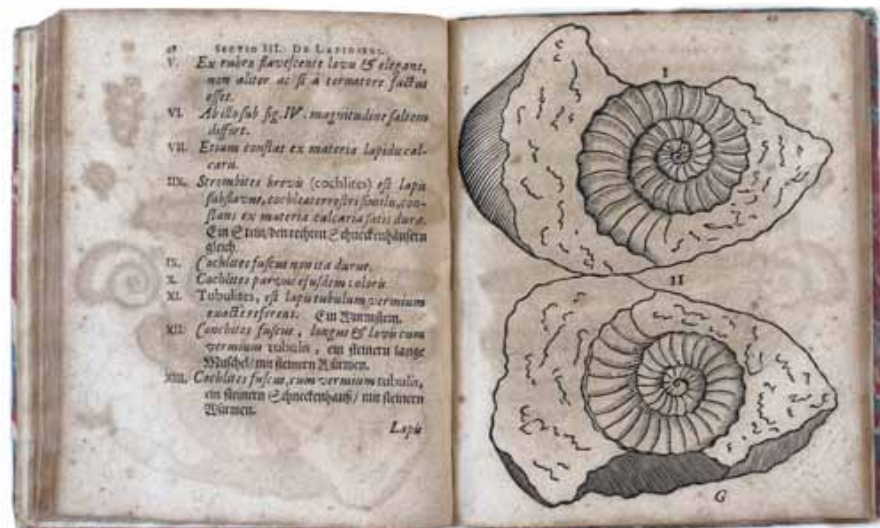 48 SECTIO III. DE LAPIDIBUS.
V. Ex rubro flavescente levis & elegans,
non aliter ac si à tornatore factus
esset.
VI. Ab isto sub fig. IV. magnitudine saltem
differt.
VII. Etiam constat ex materia lapidis cal-
carii.
IIX. Strombites brevis (cochlites) est lapis
subflavus, cochleæ terrestri similis, con-
stans ex materia calcaria satis dura.
Ein Stein/ den rechten Schneckenhäusern
gleich.
IX. Cochlites fuscus non ita durus.
X. Cochlites parvus ejusdem coloris
XI. Tubulites, est lapis tubulum vermium
exacte referens. Ein Wurmstein.
XII. Conchites fuscus, longus & levis cum
vermium tubulis, ein steinern lange
Muschel/ mit steinern Würmen.
XIII. Cochlites fuscus, cum vermium tubulis,
ein steinern Schneckenhauß/ mit steinern
Würmen.
Lapis
49
I
II
G